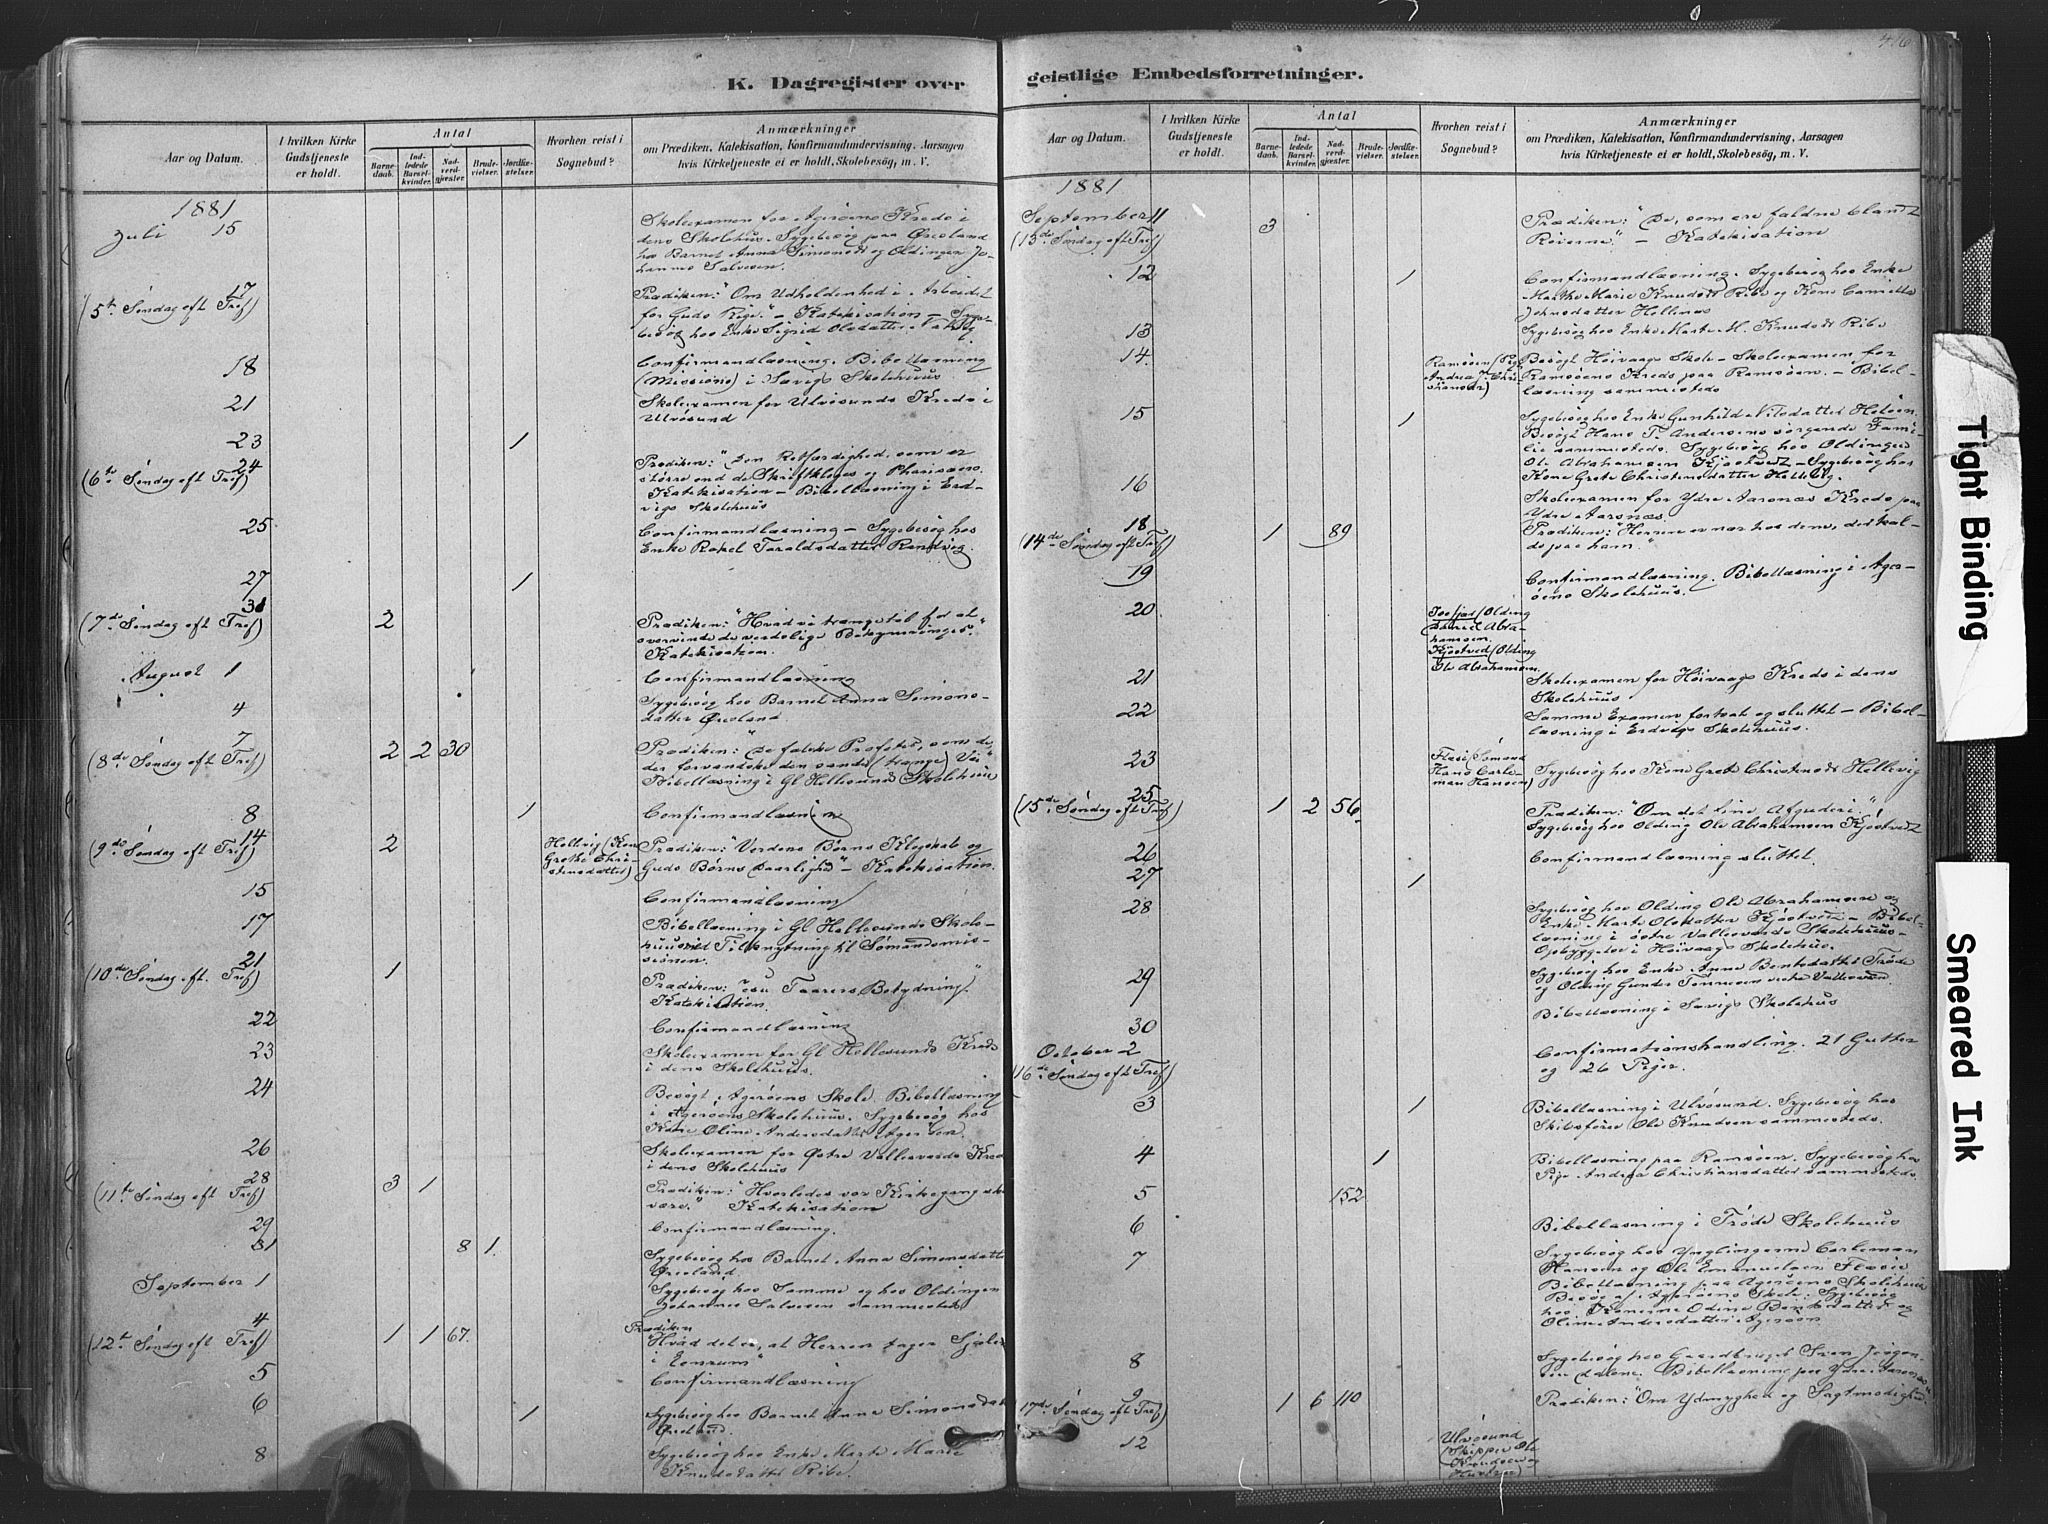 K. Dagregister over
Aar og Datum.
I hvilken Kirke Gudstjeneste er holdt.
Antal
Barnedaab.
Indledede Barselkvinder.
Nadverdgjæster.
Brudevielser.
Jordfæstelser.
Hvorhen reist i Sognebud?
Anmærkninger
om Prædiken, Katekisation, Konfirmandundervisning, Aarsagen
hvis Kirketjeneste ei er holdt, Skolebesög, m. V.
1881
Juli 15
Skoleexamen for Agerøens Kreds i
dens Skolehus. Sygebesøg paa Øreland
hos Barnet Anna Simonsd og Olding Jo-
hannes Salvesen.
17
(5te Søndag eft Tref)
Prædiken: "Om Udholdenhed i Arbeidet
for Guds Rige." - Katekisation - Syge-
besøg hos Enke Sigrid Olsdatter
18
Confirmandlæsning. Bibellæsning
(Missions) i Sævigs Skolehuus
21
Skoleexamen for Ulvøsunds Kreds i
Ulvøsund
23 1
24
(6te Søndag eft Tref)
Prædiken: "Den Retfærdighed, som er
større end de Skriftkloges og Pharisæers.
Katekisation - Bibellæsning i Erd-
vigs Skolehuus
25
Confirmandlæsning - Sygebesøg hos
Enke Rakel Taraldsdatter Randvig.
27 1
31
(7de Søndag eft Tref) 2
Prædiken: "Hvad vi trænge til for at
overvinde de verdslige Bekymringer."
Katekisation.
August 1
Confirmandlæsning
4
Sygebesøg hos Barnet Anna Simons-
datter Øreland.
7
(8de Søndag eft Tref) 2 2 30
Prædiken: "De falske Profeter, som de
der forvandske den sande (trange) Vei"
Bibellæsning i Gl Hellesunds Skolehuus
8 1
Confirmandlæsning
14
(9de Søndag eft Tref) 2
Hellvig (Kone
Grethe Chri-
stensdatter)
Prædiken: "Verdens Børns Klogskab og
Guds Børns Daarlighed" - Katekisation.
15
Confirmandlæsning
17
Bibellæsning i Gl Hellesunds Skole-
huus med Tilknytning til Sømandsmis-
sionen.
21
(10de Søndag eft. Tref) 1
Prædiken: Jesu Taarers Betydning"
Katekisation.
22
Confirmandlæsning
23
Skoleexamen for Gl Hellesunds Kreds
i dens Skolehuus.
24
Besøgt Agerøens Skole. Bibellæsning
i Agerøens Skolehuus. Sygebesøg hos
Kone Oline Andersdatter Agerøen.
26
Skoleexamen for Østre Vallesværds Kreds
i dens Skolehuus
28
(11te Søndag eft Tref) 3 1
Prædiken: "Hvorledes vor Kirkegang skal
være." Katekisation
29
Confirmandlæsning.
31 8 1.
Sygebesøg hos Barnet Anna Simonsdatter
Øreland.
September 1
Sygebesøg hos Samme og hos Oldingen
Johannes Salvesen sammesteds
4
(12te Søndag eft Tref) 1 1 67.
Prædiken
"Hvad det er, at Herren tager Sjæle
i Eenrum"
5
Confirmandlæsning
6 1
Sygebesøg hos Barnet Anna Simonsdat
Øreland.
8
Sygebesøg hos Enke Marte Marie
Knudsdatter Ribe.
geistlige Embedsforretninger.
416
Aar og Datum.
I hvilken Kirke Gudstjeneste er holdt.
Antal
Barnedaab.
Indledede Barselkvinder.
Nadverdgjæster.
Brudevielser.
Jordfæstelser.
Hvorhen reist i Sognebud?
Anmærkninger
om Prædiken, Katekisation, Konfirmandundervisning, Aarsagen
hvis Kirketjeneste ei er holdt, Skolebesög, m. V.
1881
September 11
(13de Søndag eft Tref) 3
Prædiken: "De, som ere faldne blandt
Røverne." - Katekisation
12 1
Confirmandlæsning. Sygebesøg hos Enke
Marthe Marie Knudsdt Ribe og Kone
Johnsdatter Hellenes
13
Sygebesøg hos Enke Marte M. Knudsdt Ribe
14.
Ramsøen (Pige
Andrea Chri-
stiansdr)
Besøgt Høivaags Skole - Skoleexamen for
Ramsøens Kreds paa Ramsøen. - Bibel-
læsning sammesteds
15 1
Sygebesøg hos Enke Gunhild Nilsdatter
Besøgt Hans T. Andersens sørgende Fami-
lie sammesteds. Sygebesøg hos Oldingen
Ole Abrahamsen Kjøstvedt - Sygebesøg hos
Kone Grete Christensdatter Hellevig.
16
Skoleexamen for Ydre Aarsnæs Kreds paa
Ydre Aarsnæs.
18
(14de Søndag eft Tref) 1 89
Prædiken: "Herren er nær hos dem, der kal-
de paa ham."
19
Confirmandlæsning. Bibellæsning i Ager-
øens Skolehuus.
20
(Olding
Abra-
hamsen.
Kjøstved (Olding
Ole Abrahamsen
21
Skoleexamen for Høivaags Kreds i dens
Skolehuus
22
Samme Examen fortsat og sluttet - Bibel-
læsning i Erdvigs Skolehuus.
23
Flasi (Sømand
Hans Carle-
man Hansen)
Sygebesøg hos Kone Grete Christensdt Hellevig
25
(15de Søndag eft Tref) 1 2 56.
Prædiken: "Om det fine Afguderi."
Sygebesøg hos Olding Ole Abrahamsen Kjøstvedt
26
Confirmandlæsning sluttet.
27 1
28
Sygebesøg hos Olding Ole Abrahamsen og
Enke Marte Olsdatter Kjøstvedt - Bibel-
læsning i østre Vallesværds Skolehuus -
Opbyggelse i Høivaags Skolehus.
29
Sygebesøg hos Enke Anne Bentsdatter Trøde
og Olding Gunder Tønnesen vestre Vallesværd
30
Bibellæsning i Sævigs Skolehus
October 2
(16de Søndag eft Tref)
Confirmationshandling. 21 Gutter
og 26 Piger.
3 1
Bibellæsning i Ulvøsund. Sygebesøg hos
Skibsfører Ole Knudsen sammesteds.
4 1
Bibellæsning paa Ramsøen. Sygebesøg hos
Pige Andrea Christiansdatter sammesteds.
5 152
6
Bibellæsning i Trøde Skolehuus
7
Sygebesøg hos Ynglingerne Carleman
Hansen og Ole Emanuelsen Flasie
Bibellæsning paa Agerøens Skolehuus
Besøg af Agerøens Skole. Sygebesøg
hos Konerne Oline Bentsdatter og
Oline Andersdatter Agerøen
8
Sygebesøg hos Gaardbruger Sven Jørgen-
sen Dalene. Bibellæsning paa Ydre Aarsnæs
9
17de Søndag eft Tref) 1 6 110
Prædiken: "Om Ydmyghed og Sagtmodighed"
12
Ulvøsund
(Skipper Ole
Knudsen og
Hustru)
Tight Binding
Smeared Ink